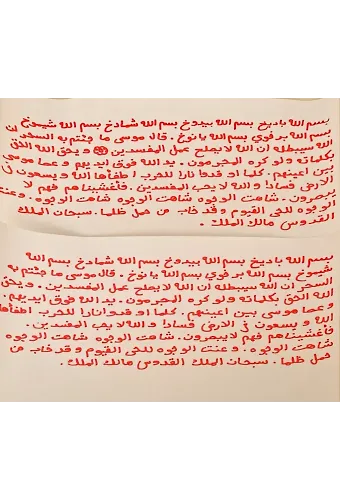 بسم الله باديخ بسم الله بيدوخ بسم الله شمادخ بسم الله شيموخ
بسم الله برفوي بسم الله يانوخ . قال موسى ما جئتم به السحر إن
الله سيبطله ان الله لا يصلح عمل المفسدين ويحق الله الحق
بكلماته ولو كره المجرمون . يد الله فوق ايديهم . وعصا موسى
بين اعينهم . كلما اوقدوا نارا للحرب اطفأها الله ويسعون في
الارض فسادا والله لا يحب المفسدين . فأغشيناهم فهم لا
يبصرون . شاهت الوجوه شاهت الوجوه شاهت الوجوه . وعنت
الوجوه للحي القيوم وقد خاب من حمل ظلما . سبحان الملك
القدوس مالك الملك .
بسم الله باديخ بسم الله بيدوخ بسم الله شمادخ بسم الله
شيموخ بسم الله برفوي بسم الله يانوخ . قال موسى ما جئتم به
السحر ان الله سيبطله ان الله لا يصلح عمل المفسدين . ويحق
الله الحق بكلماته ولو كره المجرمون . يد الله فوق ايديهم .
وعصا موسى بين اعينهم . كلما اوقدوا نارا للحرب اطفاها
الله ويسعون في الارض فسادا والله لا يحب المفسدين .
فأغشيناهم فهم لايبصرون . شاهت الوجوه شاهت الوجوه
شاهت الوجوه . وعنت الوجوه للحي القيوم وقد خاب من
حمل ظلما . سبحان الملك القدوس مالك الملك .